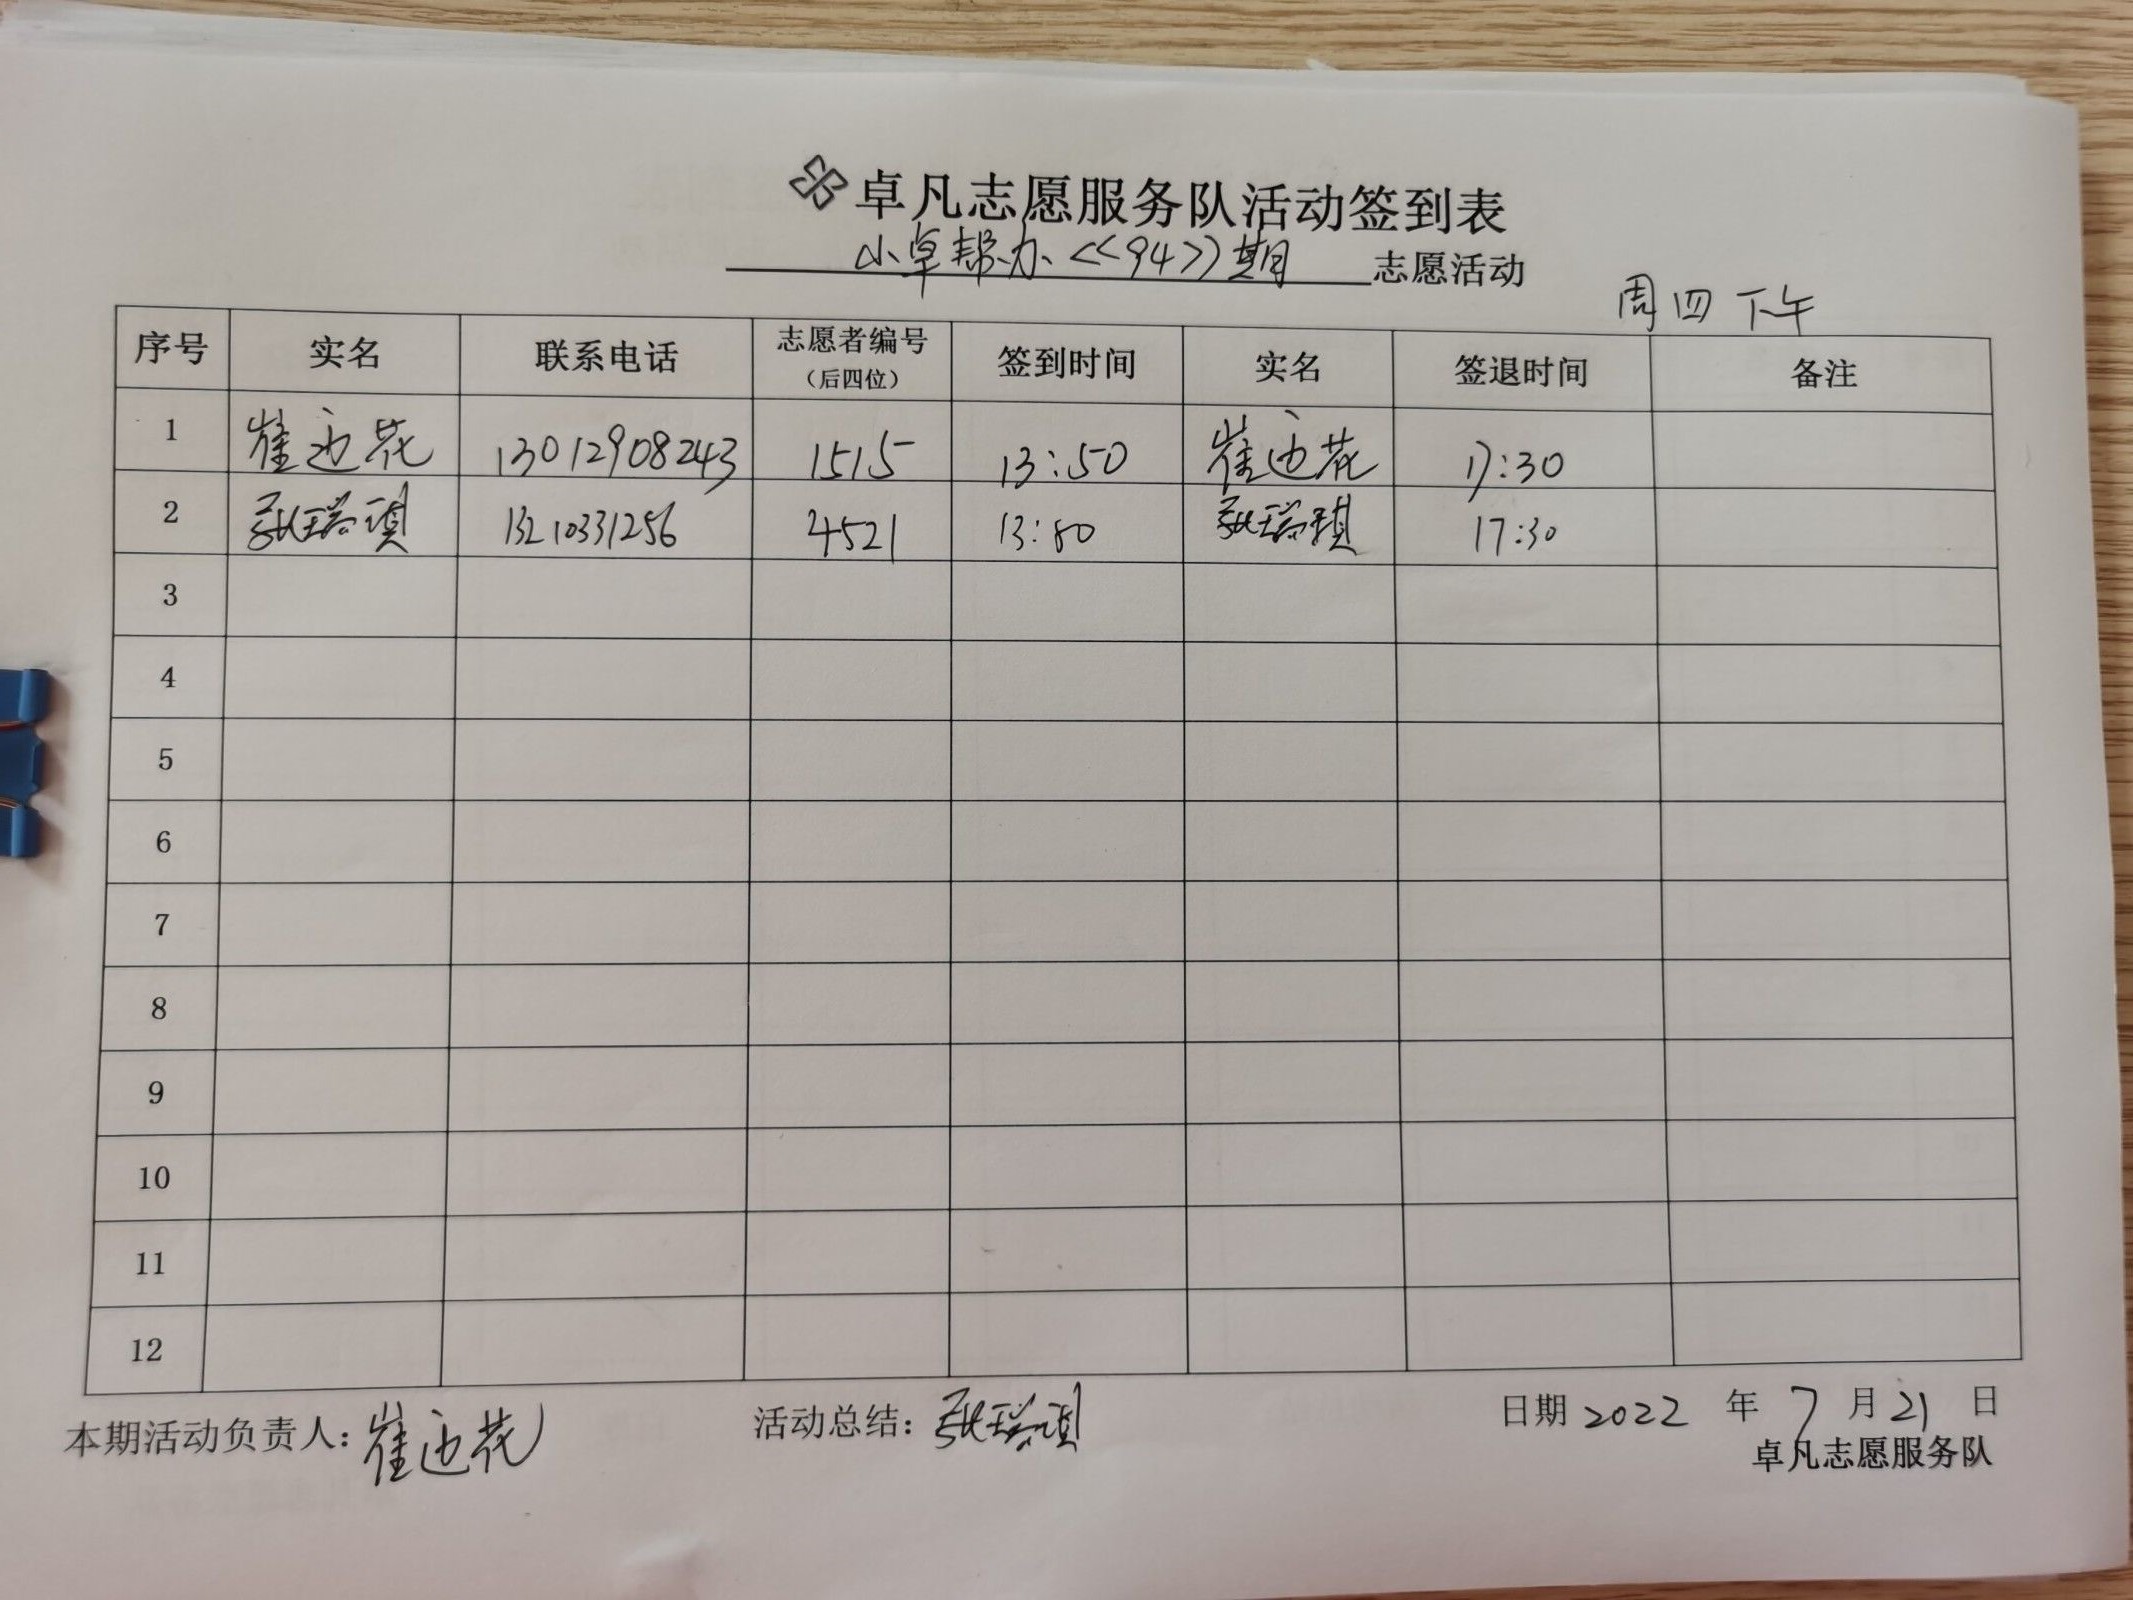 卓凡志愿服务队活动签到表
小卓帮办<<94>>期 志愿活动
周四下午
序号 实名 联系电话 志愿者编号（后四位） 签到时间 实名 签退时间 备注
1 崔迎花 13012908243 1515 13:50 崔迎花 17:30
2 瑞琪 13210331256 4521 13:50 瑞琪 17:30
3
4
5
6
7
8
9
10
11
12
本期活动负责人：崔迎花 活动总结：瑞琪 日期 2022 年 7 月 21 日
卓凡志愿服务队